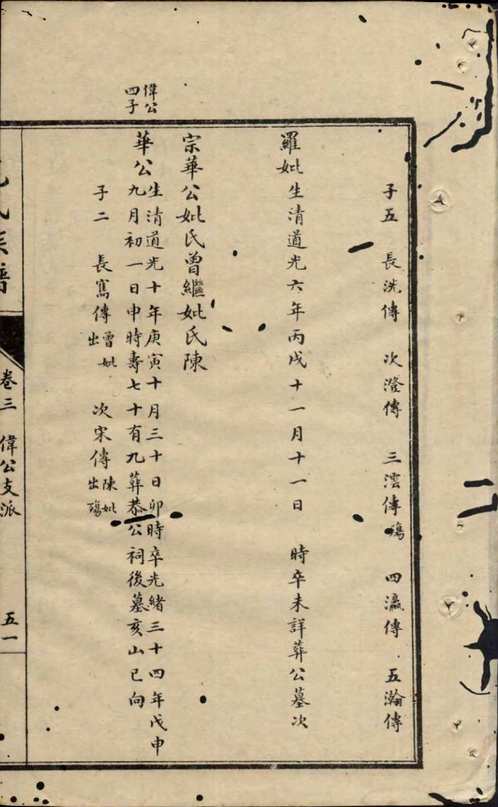 子五 長洗傳 次澄傳 三澐傳殤 四瀛傳 五瀚傳
羅妣生清道光六年丙戌十一月十一日 時卒未詳葬公墓次
宗華公妣氏曾繼妣氏陳
偉公
四子
華公生清道光十年庚寅十月三十日卯時卒光緒三十四年戊申
九月初一日申時壽七十有九葬恭公祠後墓亥山已向
子二 長寯傳曾妣出 次宋傳陳妣出殤
氏族譜
卷三 偉公支派
五一